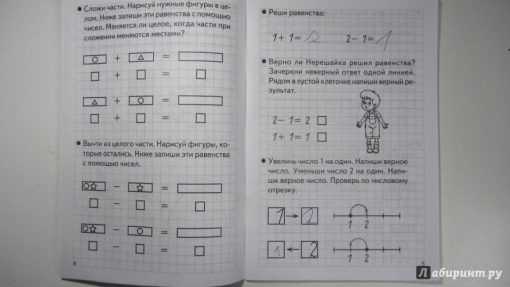 ● Сложи части. Нарисуй нужные фигуры в це-
лом. Ниже запиши эти равенства с помощью
чисел. Меняется ли целое, когда части при
сложении меняются местами?
+ =
+ =
+ =
+ =
● Вычти из целого части. Нарисуй фигуры, ко-
торые остались. Ниже запиши эти равенства
с помощью чисел.
− =
− =
− =
− =
4
● Реши равенства:
1+1=2 2−1=1
● Верно ли Нерешайка решил равенства?
Зачеркни неверный ответ одной линией.
Рядом в пустой клеточке напиши верный ре-
зультат.
2−1=2
1+1=1
● Увеличь число 1 на один. Напиши верное
число. Уменьши число 2 на один. Напи-
ши верное число. Проверь по числовому
отрезку.
1 → 2 1 2
1 ← 2 1 2
5
Лабиринт.ру